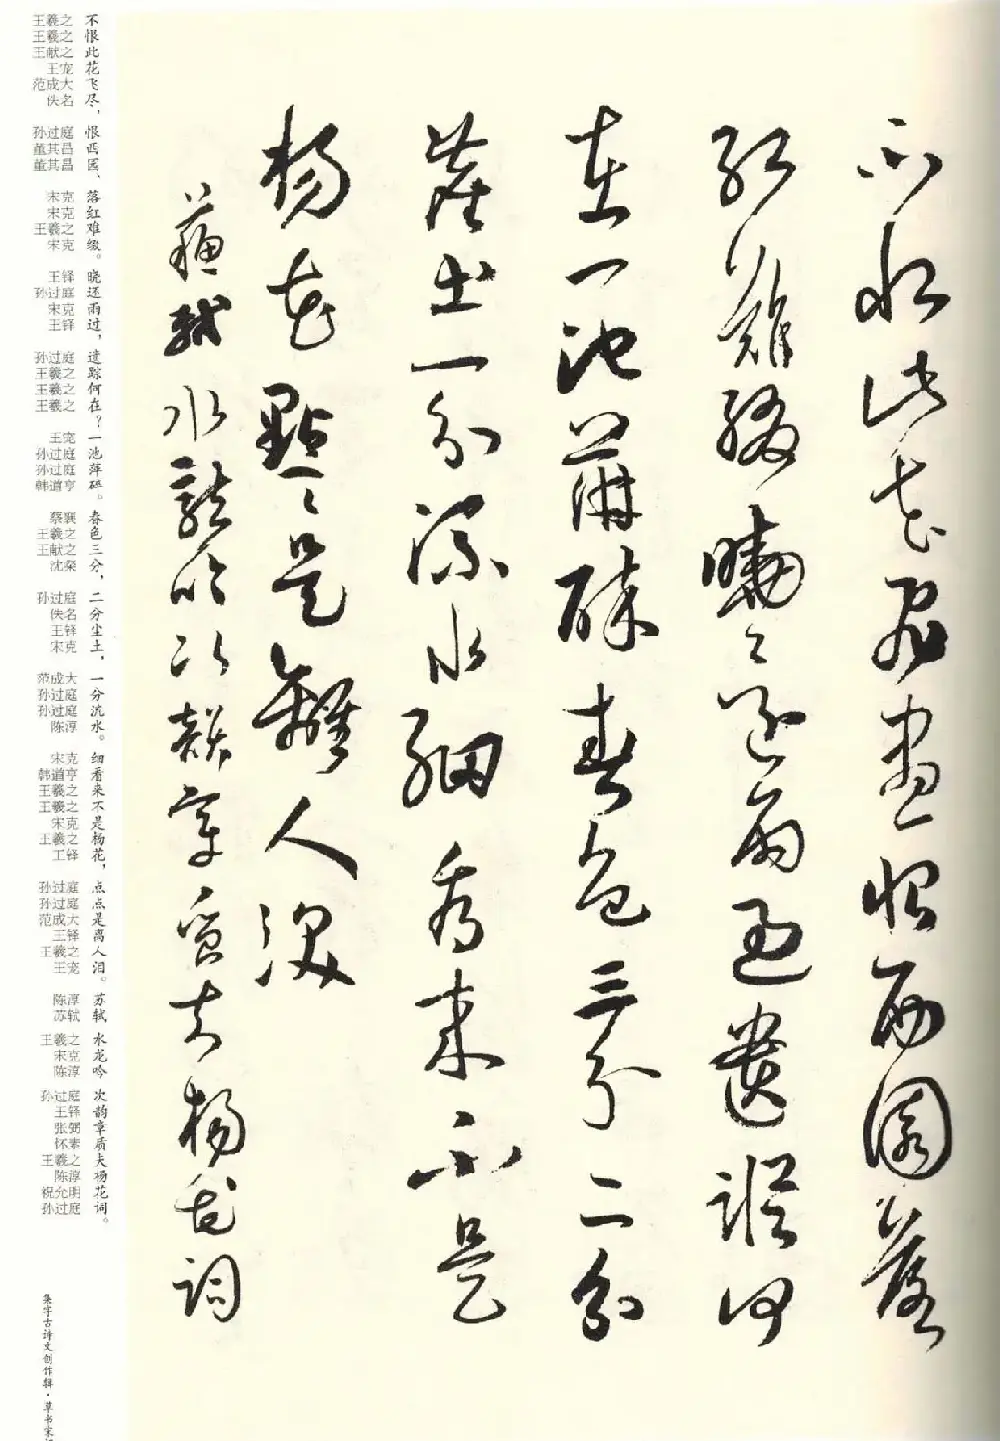 不恨此花飛盡恨西園落
紅難綴曉還雨過遺蹤何
在一池萍碎春色三分二分
塵土一分流水細看來不是
楊花點〻是離人淚
蘇軾水龍吟次韻章質夫楊花詞
王羲之 不
王羲之 恨
王献之 此
王宠 花
范成大 飞
佚名 尽，
孙过庭 恨
董其昌 西
董其昌 园、
宋克 落
宋克 红
王羲之 难
宋克 缀。
王铎 晓
孙过庭 还
宋克 雨
王铎 过，
孙过庭 遗
王羲之 踪
王羲之 何
王羲之 在？
王宠 一
孙过庭 池
孙过庭 萍
韩道亨 碎。
蔡襄 春
王羲之 色
王献之 三
沈粲 分，
孙过庭 二
佚名 分
王铎 尘
宋克 土，
范成大 一
孙过庭 分
孙过庭 流
陈淳 水。
宋克 细
韩道亨 看
王羲之 来
王羲之 不
宋克 是
王羲之 杨
王铎 花，
孙过庭 点
孙过庭 点
范成大 是
王铎 离
王羲之 人
王宠 泪。
陈淳 苏
苏轼 轼
王羲之 水
宋克 龙
陈淳 吟
孙过庭 次
王铎 韵
张弼 章
怀素 质
王羲之 夫
陈淳 杨
祝允明 花
孙过庭 词。
集字古诗文创作辑·草书宋